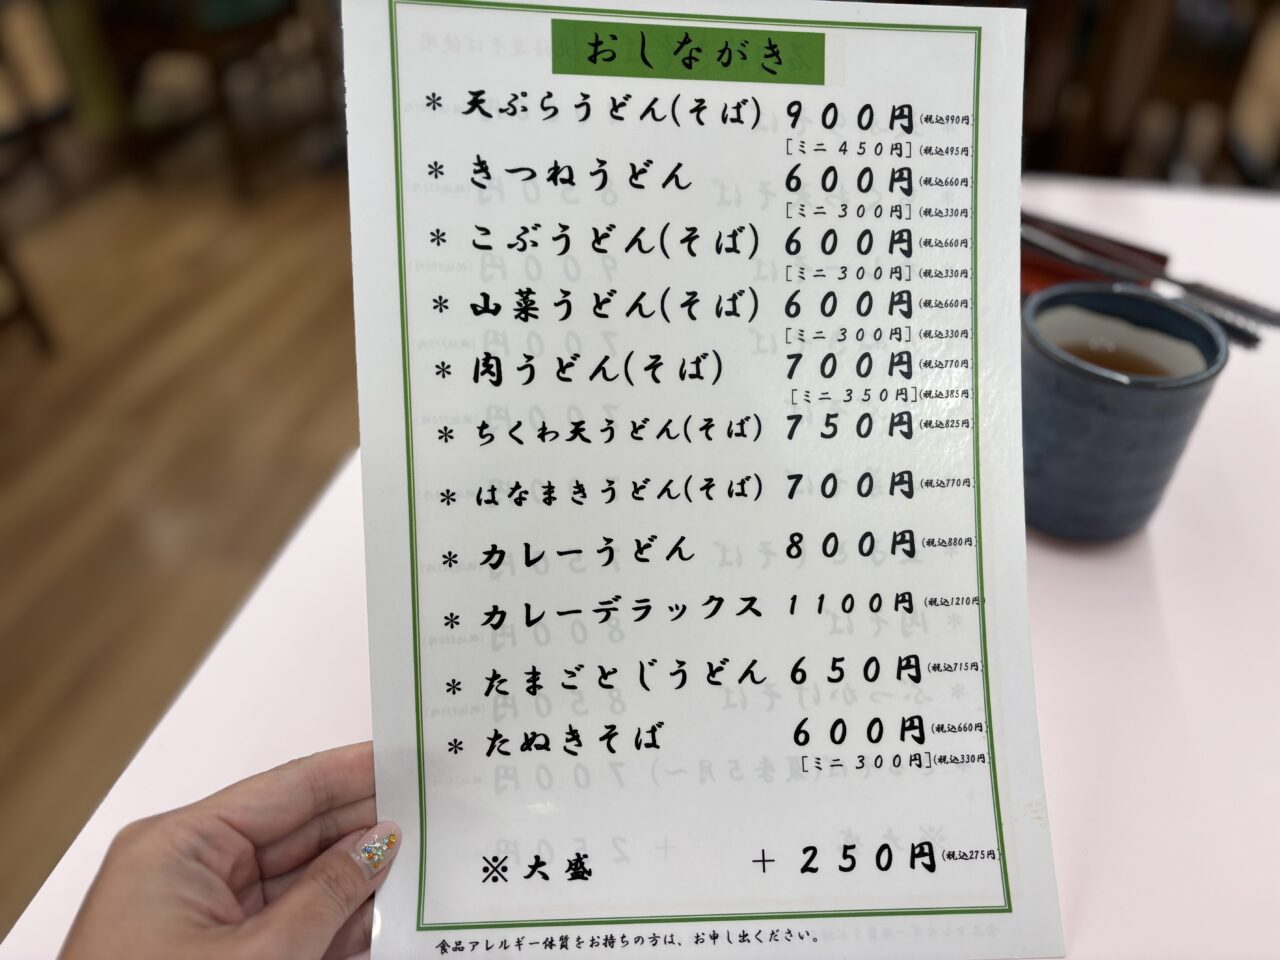 おしながき
＊ 天ぷらうどん(そば) 900円(税込990円)
[ミニ 450円](税込495円)
＊ きつねうどん 600円(税込660円)
[ミニ 300円](税込330円)
＊ こぶうどん(そば) 600円(税込660円)
[ミニ 300円](税込330円)
＊ 山菜うどん(そば) 600円(税込660円)
[ミニ 300円](税込330円)
＊ 肉うどん(そば) 700円(税込770円)
[ミニ 350円](税込385円)
＊ ちくわ天うどん(そば) 750円(税込825円)
＊ はなまきうどん(そば) 700円(税込770円)
＊ カレーうどん 800円(税込880円)
＊ カレーデラックス 1100円(税込1210円)
＊ たまごとじうどん 650円(税込715円)
＊ たぬきそば 600円(税込660円)
[ミニ 300円](税込330円)
※ 大盛 ＋250円(税込275円)
食品アレルギー体質をお持ちの方は、お申し出ください。